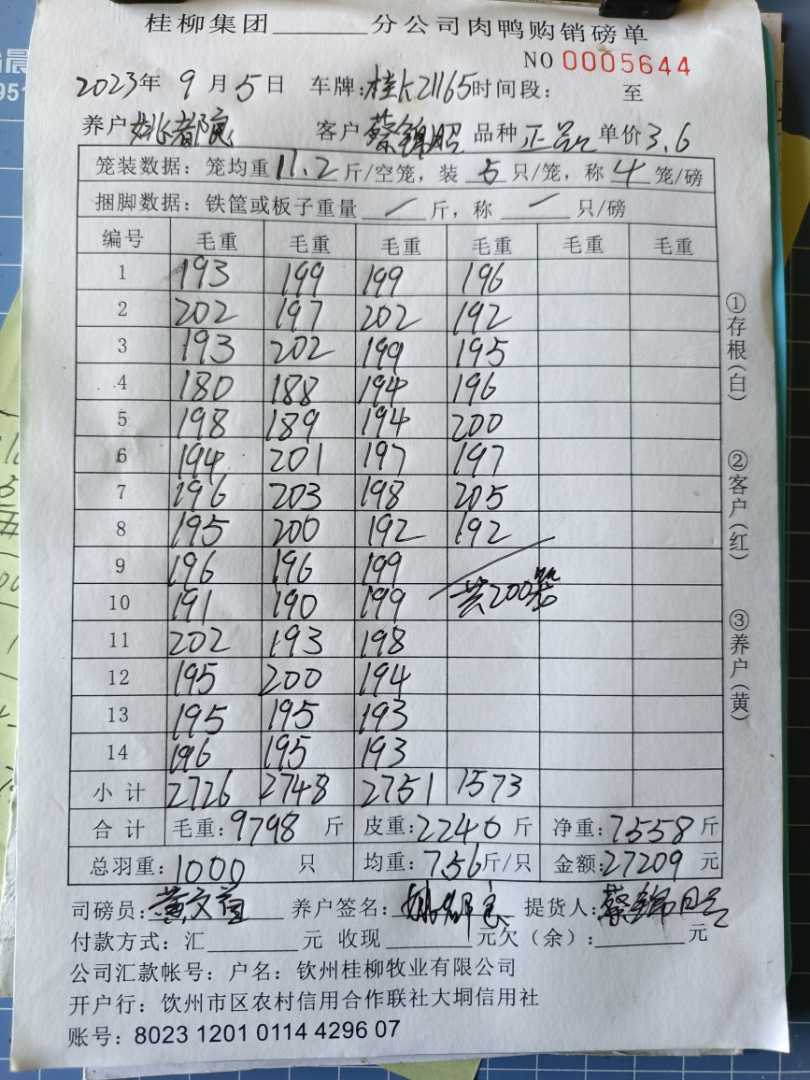 桂柳集团______分公司肉鸭购销磅单
NO 0005644
2023年 9 月 5 日 车牌:桂K21165 时间段: 至
养户 姚都良 客户 蔡锦昭 品种 正品 单价 3.6
笼装数据: 笼均重 11.2 斤/空笼, 装 5 只/笼, 称 4 笼/磅
捆脚数据: 铁筐或板子重量 / 斤, 称 / 只/磅
编号 毛重 毛重 毛重 毛重 毛重 毛重
1 193 199 199 196
2 202 197 202 192
3 193 202 199 195
4 180 188 194 196
5 198 189 194 200
6 194 201 197 197
7 196 203 198 205
8 195 200 192 192
9 196 196 199
10 191 190 199 共200笼
11 202 193 198
12 195 200 194
13 195 195 193
14 196 195 193
小计 2726 2748 2751 1573
合计 毛重: 9798 斤 皮重: 2240 斤 净重: 7558 斤
总羽重: 1000 只 均重: 7.56 斤/只 金额: 27209 元
司磅员: 养户签名: 姚都良 提货人: 蔡锦昭
付款方式: 汇______元 收现______元欠（余）:______元
公司汇款帐号: 户名: 钦州桂柳牧业有限公司
开户行: 钦州市区农村信用合作联社大垌信用社
账号: 8023 1201 0114 4296 07
①存根(白)
②客户(红)
③养户(黄)